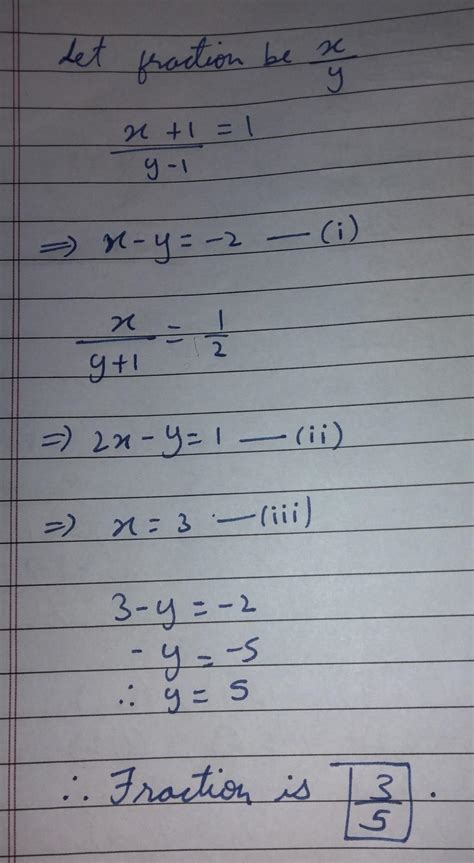 Let fraction be x/y
x+1/y-1 = 1
⇒ x-y = -2 — (i)
x/y+1 = 1/2
⇒ 2x-y=1 — (ii)
⇒ x = 3 — (iii)
3-y = -2
-y = -5
∴ y = 5
∴ Fraction is 3/5.